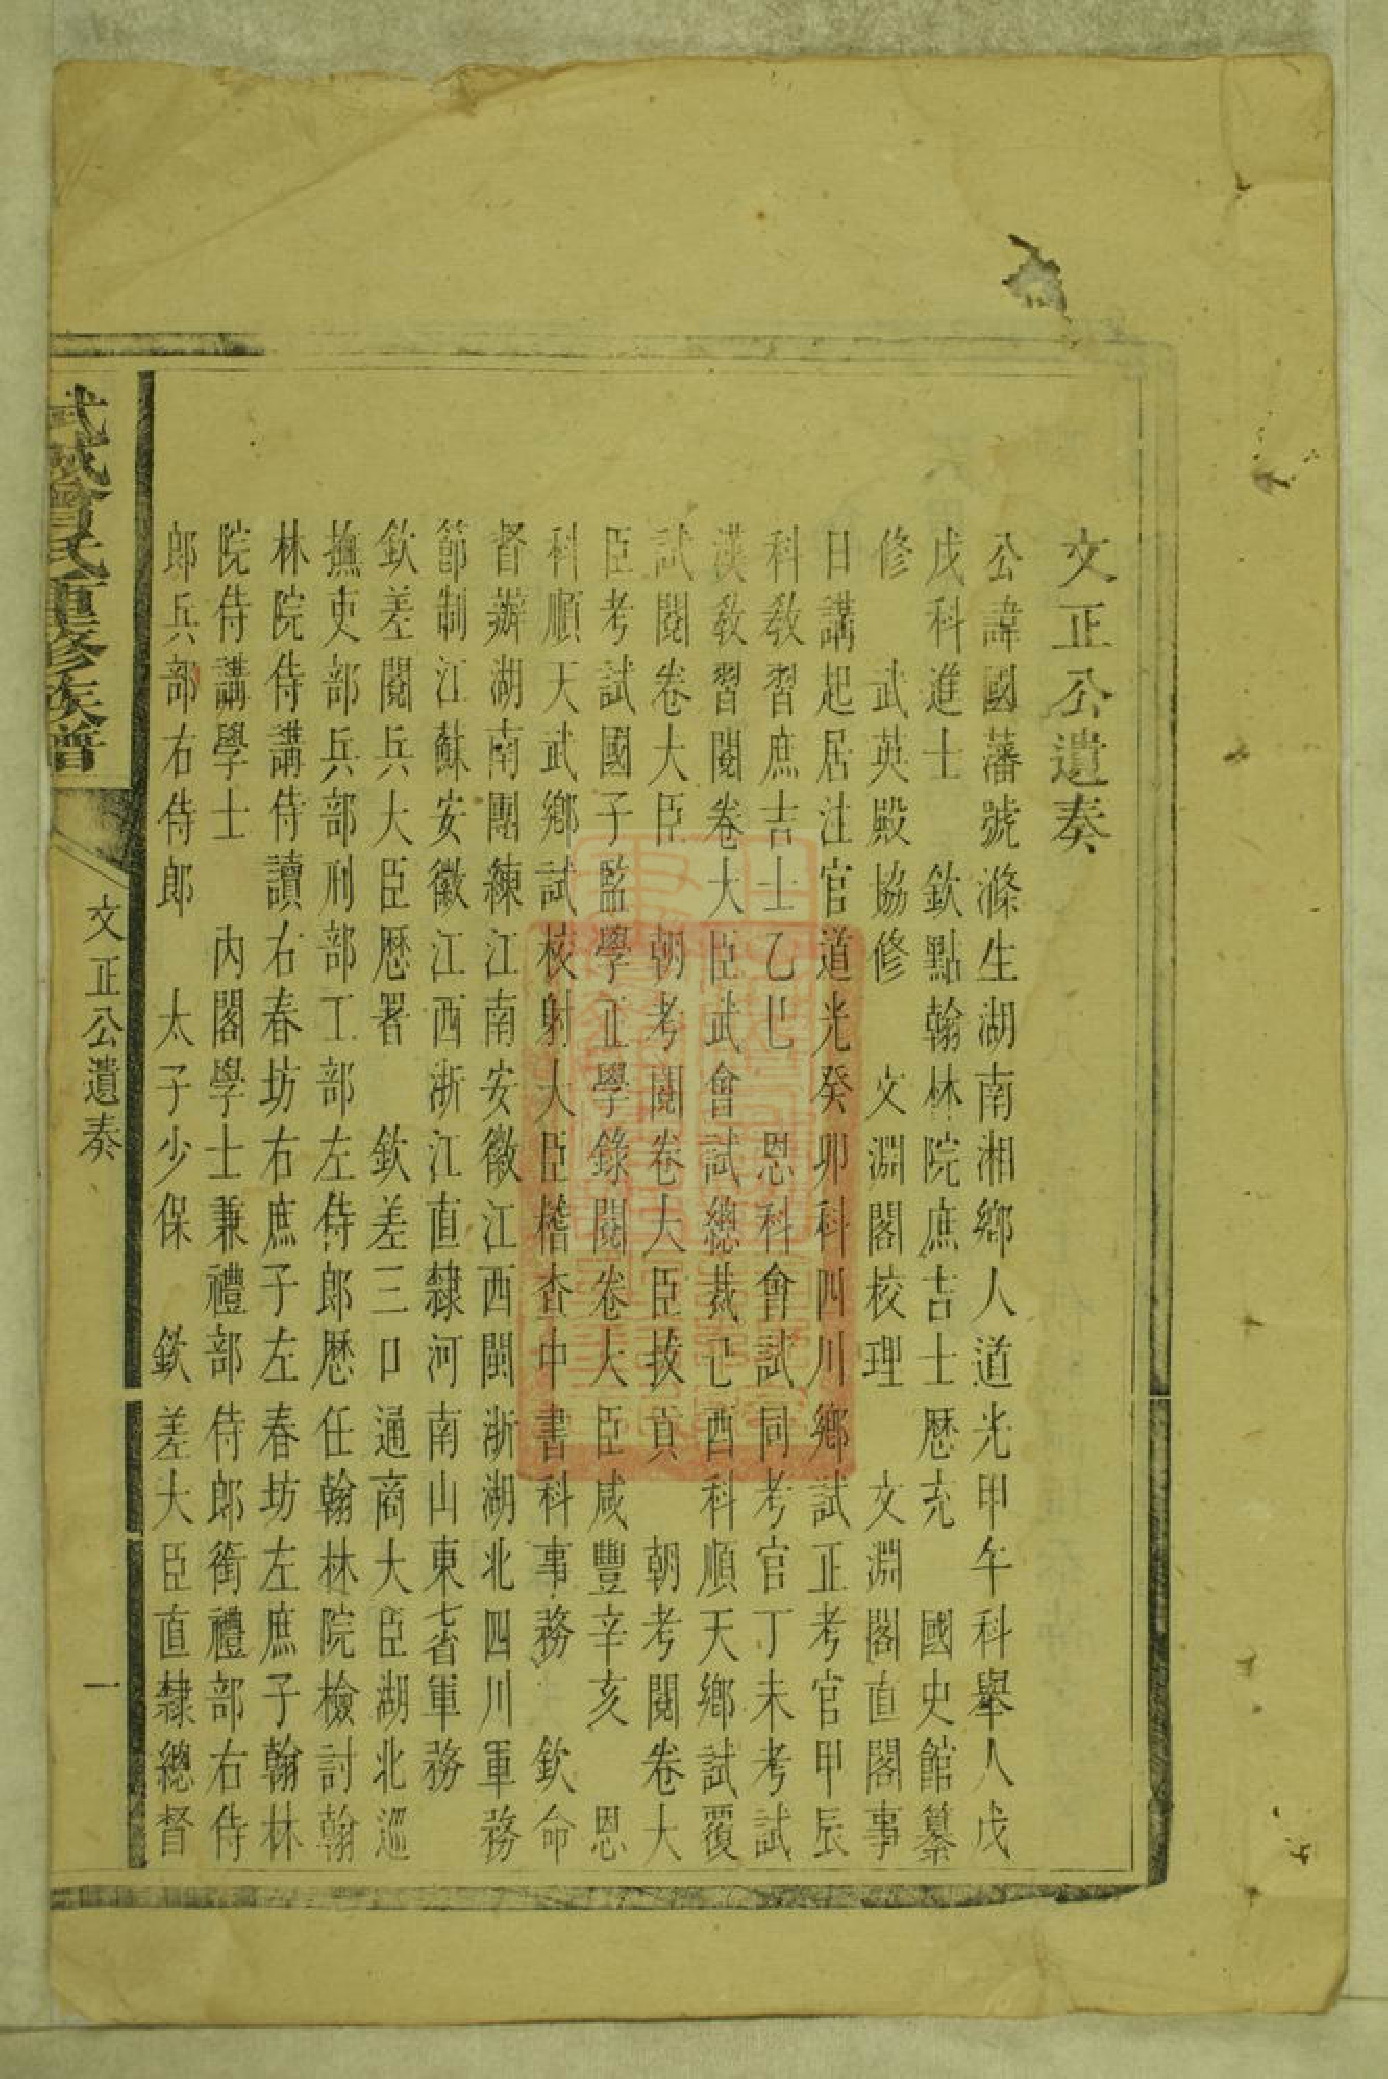 文正公遺奏
公諱國藩號滌生湖南湘鄉人道光甲午科舉人戊
戌科進士　欽點翰林院庶吉士歷充　國史館纂
修　武英殿協修　文淵閣校理　文淵閣直閣事
日講起居注官道光癸卯科四川鄉試正考官甲辰
科教習庶吉士乙巳　恩科會試同考官丁未考試
漢教習閱卷大臣武會試總裁己酉科順天鄉試覆
試閱卷大臣　朝考閱卷大臣拔貢　朝考閱卷大
臣考試國子監學正學錄閱卷大臣咸豐辛亥　恩
科順天武鄉試校射大臣稽查中書科事務　欽命
督辦湖南團練江南安徽江西閩浙湖北四川軍務
節制江蘇安徽江西浙江直隸河南山東七省軍務
欽差閱兵大臣歷署　欽差三口通商大臣湖北巡
撫吏部兵部刑部工部左侍郎歷任翰林院檢討翰
林院侍講侍讀右春坊右庶子左春坊左庶子翰林
院侍講學士　內閣學士兼禮部侍郎銜禮部右侍
郎兵部右侍郎　太子少保　欽差大臣直隸總督
武城曾氏重修族譜
文正公遺奏
一